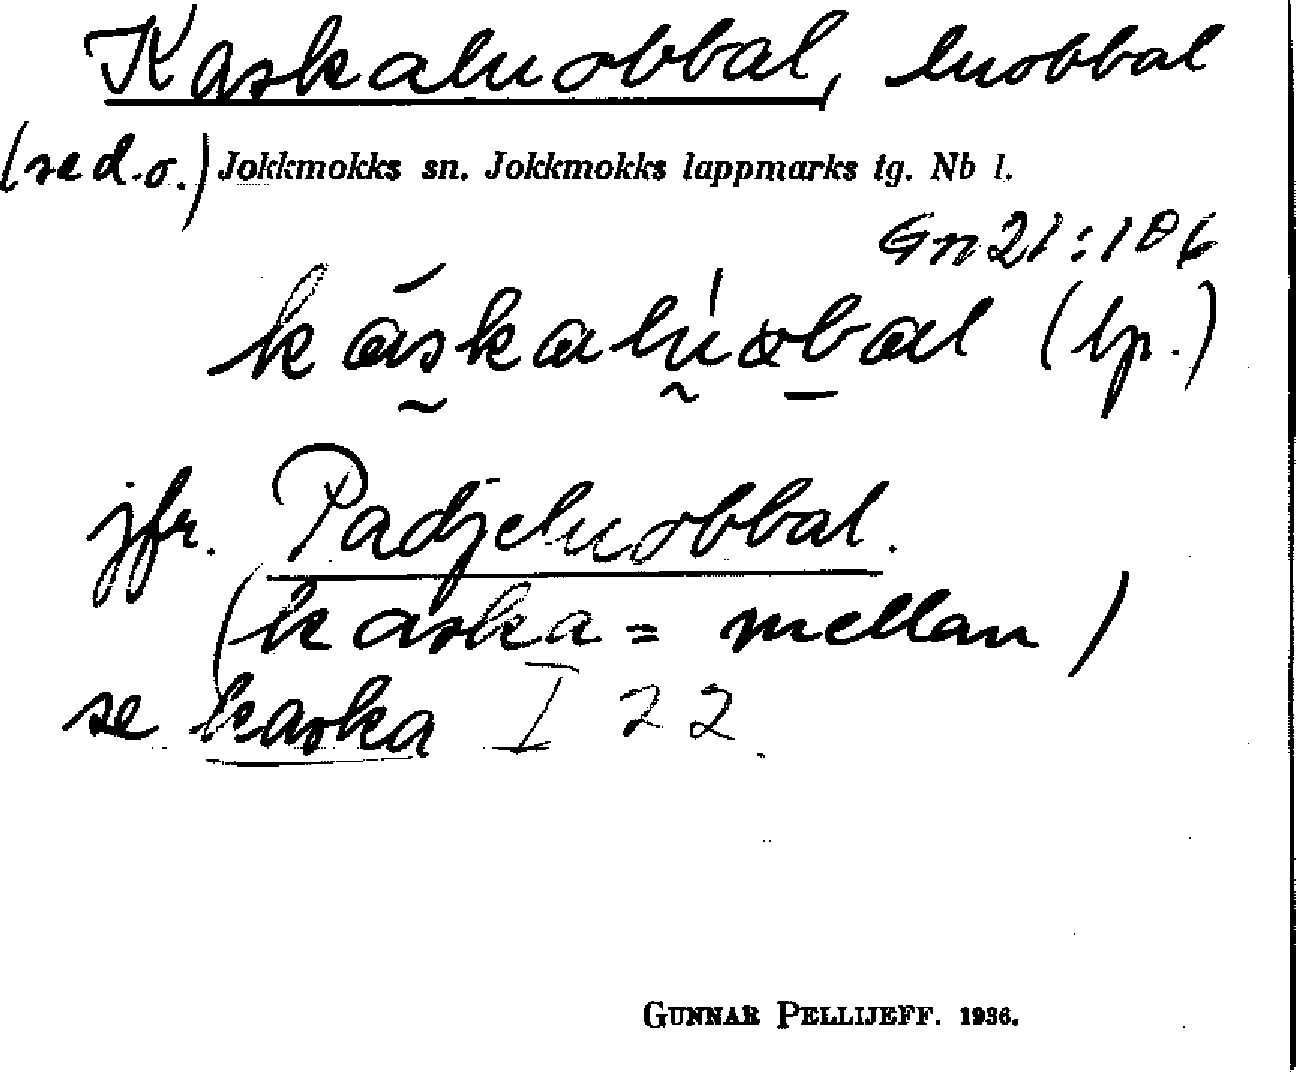 Kaskaluobbal, luobbal
(se d.o.) Jokkmokks sn. Jokkmokks lappmarks tg. Nb l.
Gn 21:186
káskalúobal (lp.)
jfr. Padjeluobbal.
(kaska = mellan)
se kaska I 22
GUNNAR PELLIJEFF. 1936.